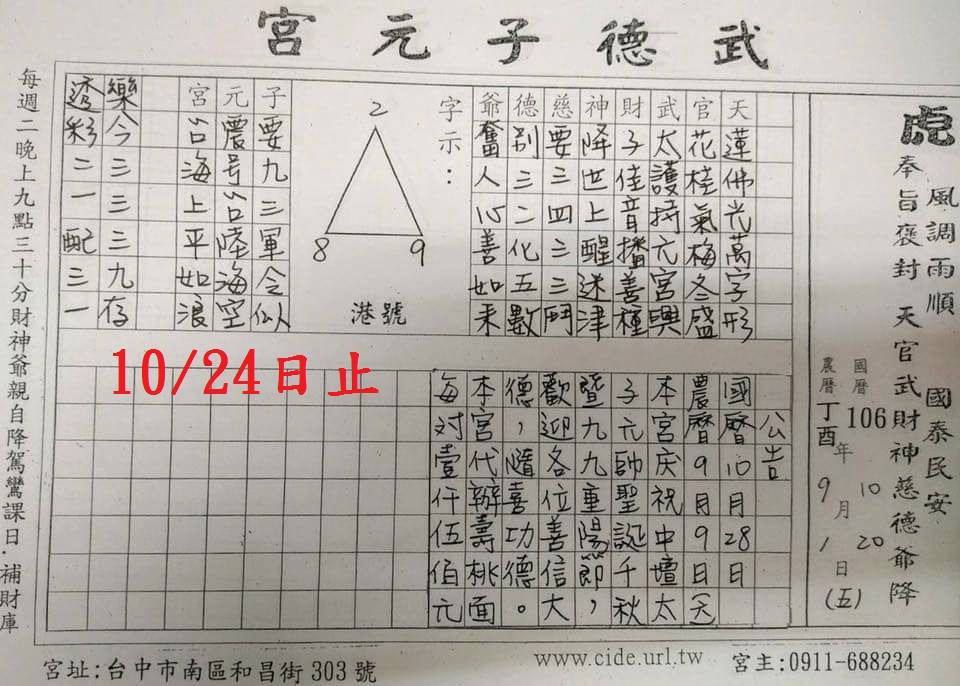 武德子元宮
虎
風調雨順 國泰民安
奉旨褒封 天官武財神慈德爺降
國曆 106 年 10 月 20 日
農曆 丁酉 年 9 月 1 日 (五)
天蓮佛光萬字形
官花桂氣梅冬盛
武太護持元宮興
財子佳音播善種
神降世上醒迷津
慈要三四三三鬥
德別三二化五數
爺奮人心善如来
字示：
2
8
9
港號
子要九三軍令似
元農号台陸海空
宮台海上平如浪
樂今三三三九存
透彩二一配三一
公告
國曆10月28日
農曆9月9日(六)
本宮庆祝中壇太
子元帥聖誕千秋
暨九九重陽節，
歡迎各位善信大
德，隨喜功德。
本宮代辦壽桃面
每対壹仟伍佰元
10/24日止
每週二晚上九點三十分財神爺親自降駕鸞課日．補財庫
宮址:台中市南區和昌街303號
www.cide.url.tw
宮主:0911-688234